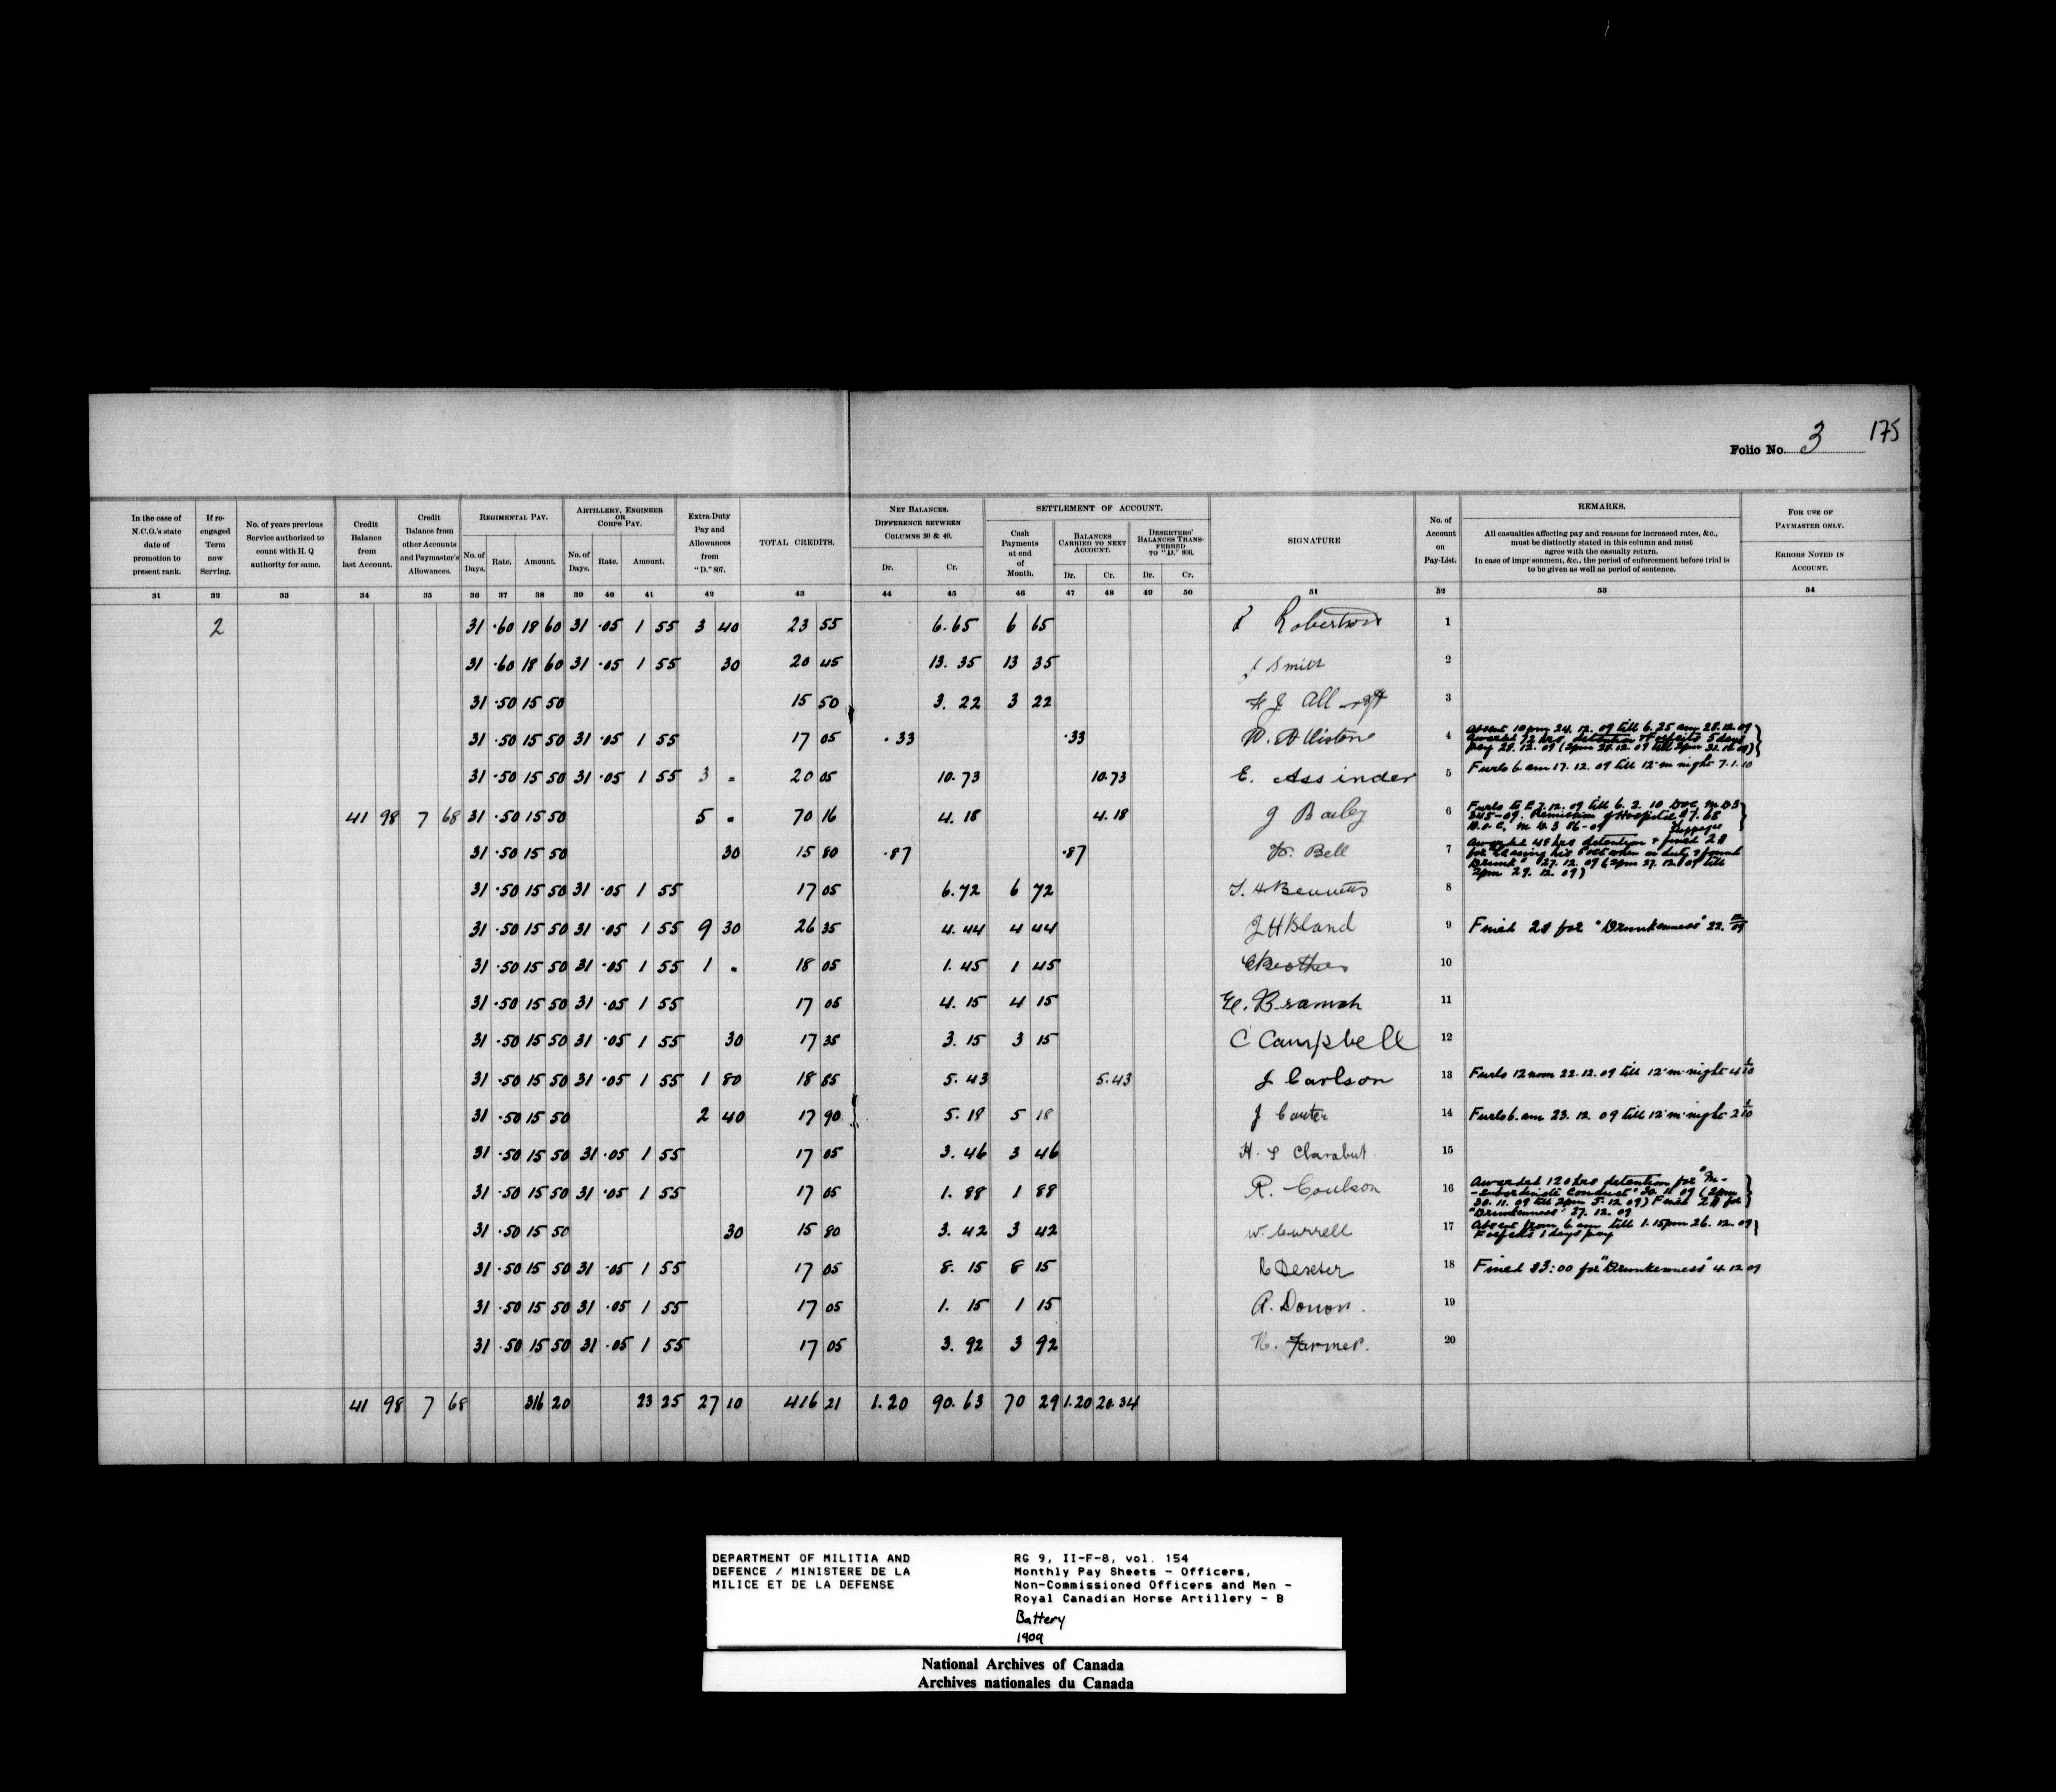 Folio No. 3 175
In the case of N.C.O.'s state date of promotion to present rank.
If re-engaged Term now Serving.
No. of years previous Service authorized to count with H. Q authority for same.
Credit Balance from last Account.
Credit Balance from other Accounts and Paymaster's Allowances.
REGIMENTAL PAY.
No. of Days. Rate. Amount.
ARTILLERY, ENGINEER OR CORPS PAY.
No. of Days. Rate. Amount.
Extra-Duty Pay and Allowances from "D." 807.
TOTAL CREDITS.
NET BALANCES.
DIFFERENCE BETWEEN COLUMNS 30 & 40.
Dr. Cr.
SETTLEMENT OF ACCOUNT.
Cash Payments at end of Month.
BALANCES CARRIED TO NEXT ACCOUNT.
Dr. Cr.
DESERTERS' BALANCES TRANSFERRED TO "D." 806.
Dr. Cr.
SIGNATURE
No. of Account on Pay-List.
REMARKS.
All casualties affecting pay and reasons for increased rates, &c.,
must be distinctly stated in this column and must
agree with the casualty return.
In case of impr sonment, &c., the period of enforcement before trial is
to be given as well as period of sentence.
FOR USE OF PAYMASTER ONLY.
ERRORS NOTED IN ACCOUNT.
31 32 33 34 35 36 37 38 39 40 41 42 43 44 45 46 47 48 49 50 51 52 53 54
2 31 ·60 18 60 31 ·05 1 55 3 40 23 55 6.65 6 65 Robertson 1
31 ·60 18 60 31 ·05 1 55 30 20 45 13.35 13 35 Smith 2
31 ·50 15 50 15 50 3.22 3 22 3
31 ·50 15 50 31 ·05 1 55 17 05 ·33 ·33 W. Allistone 4 Absent 10 pm 24.12.09 till 6.25 am 28.12.09
awarded 72 hrs detention & forfeits 5 days
pay 28.12.09 (2pm 28.12.09 till 2pm 31.12.09)
31 ·50 15 50 31 ·05 1 55 3 - 20 05 10.73 10.73 E. Assinder 5 Furlo 6 am 17.12.09 till 12 m night 7.1.10
41 98 7 68 31 ·50 15 50 5 - 70 16 4.18 4.18 J Bailey 6 Furlo 7.12.09 till 6.2.10 DOC M D 3
345-09. Remission of Hospital $7.68
D.O.C. M D. 3 86-09 Stoppages
31 ·50 15 50 30 15 80 ·87 ·87 Bell 7 Awarded 48 hrs detention & fined 2$
for "Leaving his Post when on duty & found
Drunk" 27.12.09 (2pm 27.12.09 till
2pm 29.12.09)
31 ·50 15 50 31 ·05 1 55 17 05 6.72 6 72 Bennetts 8
31 ·50 15 50 31 ·05 1 55 9 30 26 35 4.44 4 44 J H Bland 9 Fined 2$ for "Drunkenness" 22.12/09
31 ·50 15 50 31 ·05 1 55 1 - 18 05 1.45 1 45 10
31 ·50 15 50 31 ·05 1 55 17 05 4.15 4 15 Bramah 11
31 ·50 15 50 31 ·05 1 55 30 17 35 3.15 3 15 C Campbell 12
31 ·50 15 50 31 ·05 1 55 1 80 18 85 5.43 5.43 J Carlson 13 Furlo 12 noon 22.12.09 till 12 m night 4 1/10
31 ·50 15 50 2 40 17 90 5.18 5 18 J Carter 14 Furlo 6 am 23.12.09 till 12 m night 2 1/10
31 ·50 15 50 31 ·05 1 55 17 05 3.46 3 46 H. S Clarabut 15
31 ·50 15 50 31 ·05 1 55 17 05 1.88 1 88 R. Coulson 16 Awarded 120 hrs detention for "In-
-subordinate Conduct" 30.11.09 (2pm
30.11.09 till 2pm 5.12.09) Fined 2$ for
"Drunkenness" 27.12.09
31 ·50 15 50 30 15 80 3.42 3 42 W. Currell 17 Absent from 6 am till 1.15pm 26.12.09
Forfeits 1 days pay
31 ·50 15 50 31 ·05 1 55 17 05 8.15 8 15 Dexter 18 Fined $3:00 for "Drunkenness" 4.12.09
31 ·50 15 50 31 ·05 1 55 17 05 1.15 1 15 A. Donon. 19
31 ·50 15 50 31 ·05 1 55 17 05 3.92 3 92 Farmer. 20
41 98 7 68 316 20 23 25 27 10 416 21 1.20 90.63 70 29 1.20 20.34
DEPARTMENT OF MILITIA AND
DEFENCE / MINISTERE DE LA
MILICE ET DE LA DEFENSE
RG 9, II-F-8, vol. 154
Monthly Pay Sheets - Officers,
Non-Commissioned Officers and Men -
Royal Canadian Horse Artillery - B
Battery
1909
National Archives of Canada
Archives nationales du Canada